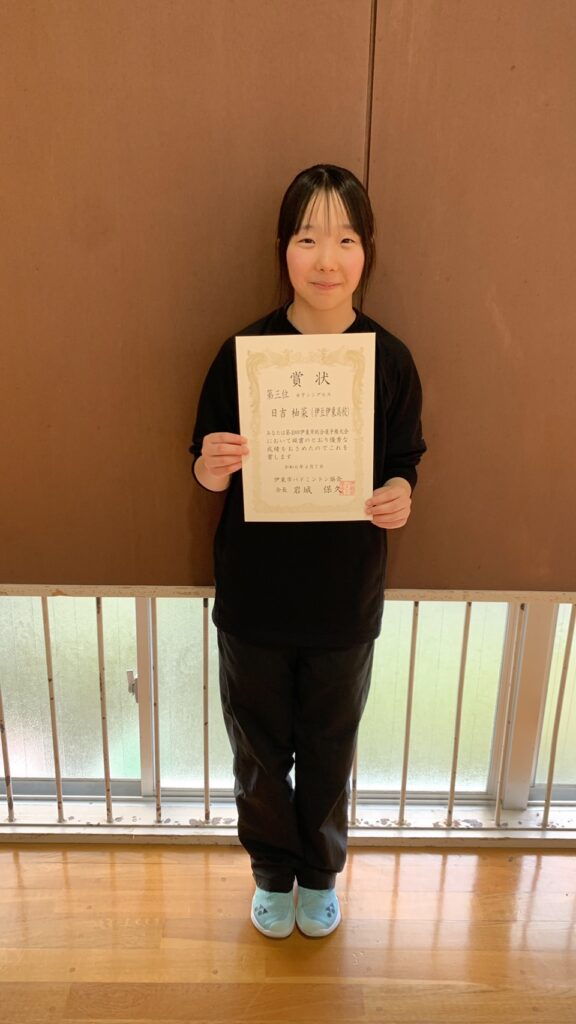 賞状
第三位 女子シングルス
日吉 柚菜(伊豆伊東高校)
あなたは第49回伊東市総合選手権大会
において頭書のとおり優秀な
成績をおさめたのでこれを
賞します
伊東市バドミントン協会
会長 岩城 保久